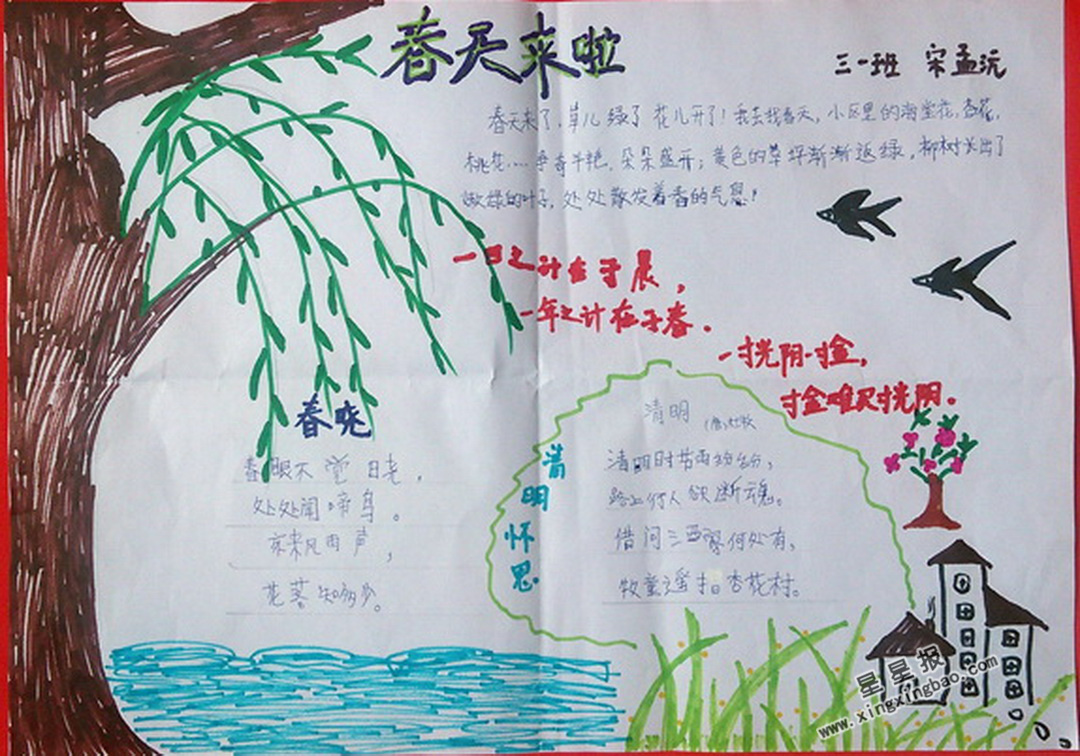 春天来啦
三一班 宋孟沅
春天来了，草儿绿了 花儿开了！我去找春天，小区里的海棠花，杏花，
桃花……争奇斗艳，朵朵盛开；黄色的草坪渐渐返绿，柳树长出了
嫩绿的叶子，处处散发着春的气息！
一日之计在于晨，
一年之计在于春．
一寸光阴一寸金，
寸金难买寸光阴．
春晓
春眠不觉日老，
处处闻啼鸟。
夜来风雨声，
花落知多少。
清明怀思
清明
(唐)杜牧
清明时节雨纷纷，
路上行人欲断魂。
借问三酒家何处有，
牧童遥指杏花村。
星星报
www.xingxingbao.com